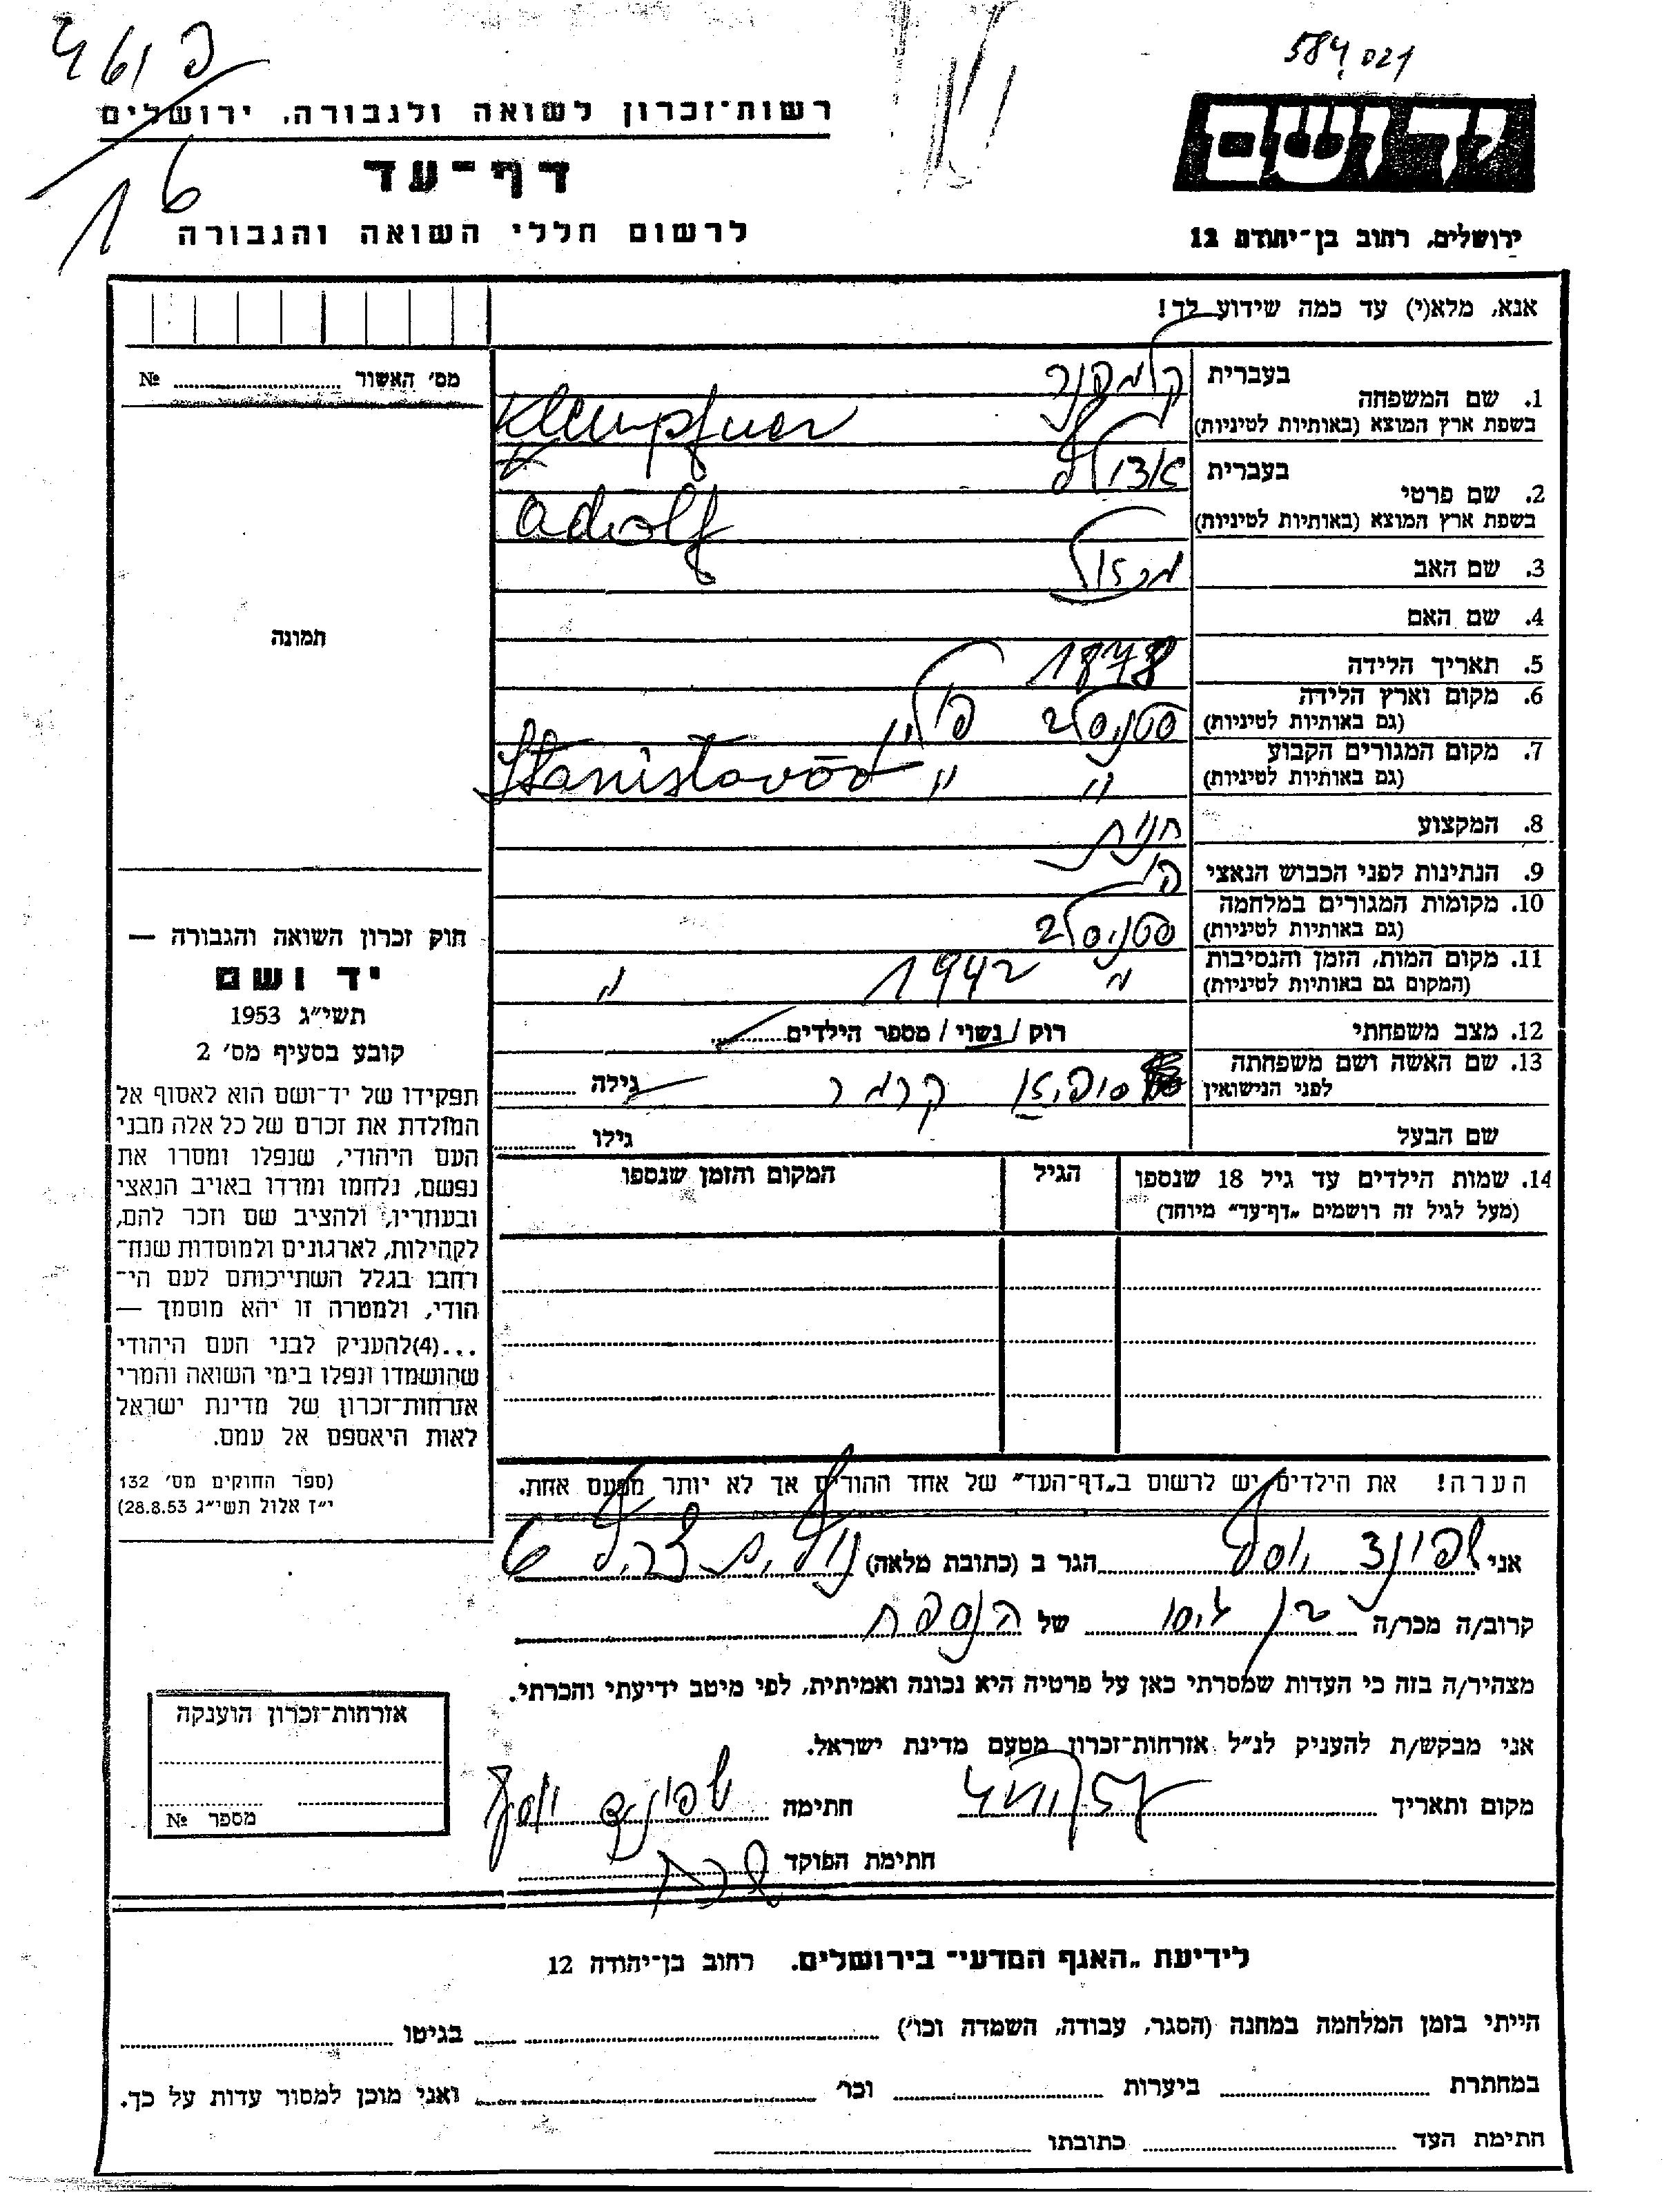 584021
רשות־זכרון לשואה ולגבורה, ירושלים
דף־עד
לרשום חללי השואה והגבורה
16
יד ושם
ירושלים, רחוב בן־יהודה 12
אנא, מלא(י) עד כמה שידוע לך!
מס׳ האשור № 
1. שם המשפחה
בעברית קלמפנר
בשפת ארץ המוצא (באותיות לטיניות) Klempfner
2. שם פרטי
בעברית אדולף
בשפת ארץ המוצא (באותיות לטיניות) Adolf
3. שם האב
4. שם האם
5. תאריך הלידה 1878
6. מקום וארץ הלידה
(גם באותיות לטיניות) סטניסלב פולין
7. מקום המגורים הקבוע
(גם באותיות לטיניות) " " Stanisławów
8. המקצוע
9. הנתינות לפני הכבוש הנאצי
10. מקומות המגורים במלחמה
(גם באותיות לטיניות) סטניסלב
11. מקום המות, הזמן והנסיבות
(המקום גם באותיות לטיניות) " 1942 "
12. מצב משפחתי רוק / נשוי / מספר הילדים
13. שם האשה ושם משפחתה
לפני הנישואין סופיה קרמר גילה
שם הבעל גילו
14. שמות הילדים עד גיל 18 שנספו הגיל המקום והזמן שנספו
(מעל לגיל זה רושמים „דף־עד״ מיוחד)
תמונה
חוק זכרון השואה והגבורה —
יד ושם
תשי״ג 1953
קובע בסעיף מס׳ 2
תפקידו של יד־ושם הוא לאסוף אל
המולדת את זכרם של כל אלה מבני
העם היהודי, שנפלו ומסרו את
נפשם, נלחמו ומרדו באויב הנאצי
ובעוזריו, ולהציב שם וזכר להם,
לקהילות, לארגונים ולמוסדות שנח־
רחבו בגלל השתייכותם לעם הי־
הודי, ולמטרה זו יהא מוסמך —
...(4)להעניק לבני העם היהודי
שהושמדו ונפלו בימי השואה והמרי
אזרחות־זכרון של מדינת ישראל
לאות היאספם אל עמם.
(ספר החוקים מס׳ 132
י״ז אלול תשי״ג 28.8.53)
הערה! את הילדים יש לרשום ב„דף־העד״ של אחד ההורים אך לא יותר מפעם אחת.
אני יוסף הגר ב (כתובת מלאה)
קרוב/ה מכר/ה בן גיסו של הנספה
מצהיר/ה בזה כי העדות שמסרתי כאן על פרטיה היא נכונה ואמיתית, לפי מיטב ידיעתי והכרתי.
אני מבקש/ת להעניק לנ״ל אזרחות־זכרון מטעם מדינת ישראל.
מקום ותאריך חתימה יוסף
חתימת הפוקד
אזרחות־זכרון הוענקה
מספר №
לידיעת „האגף המדעי״ בירושלים. רחוב בן־יהודה 12
הייתי בזמן המלחמה במחנה (הסגר, עבודה, השמדה וכו׳) בגיטו
במחתרת ביערות וכו׳ ואני מוכן למסור עדות על כך.
חתימת העד כתובתו